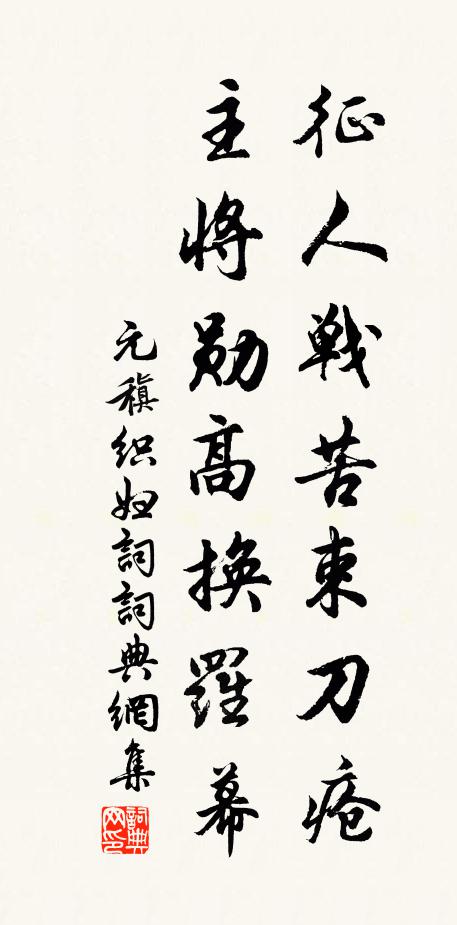 征人戦苦束刀疮
主将勋高换羅幕
元稹织妇詞詞典網集
詞典网印